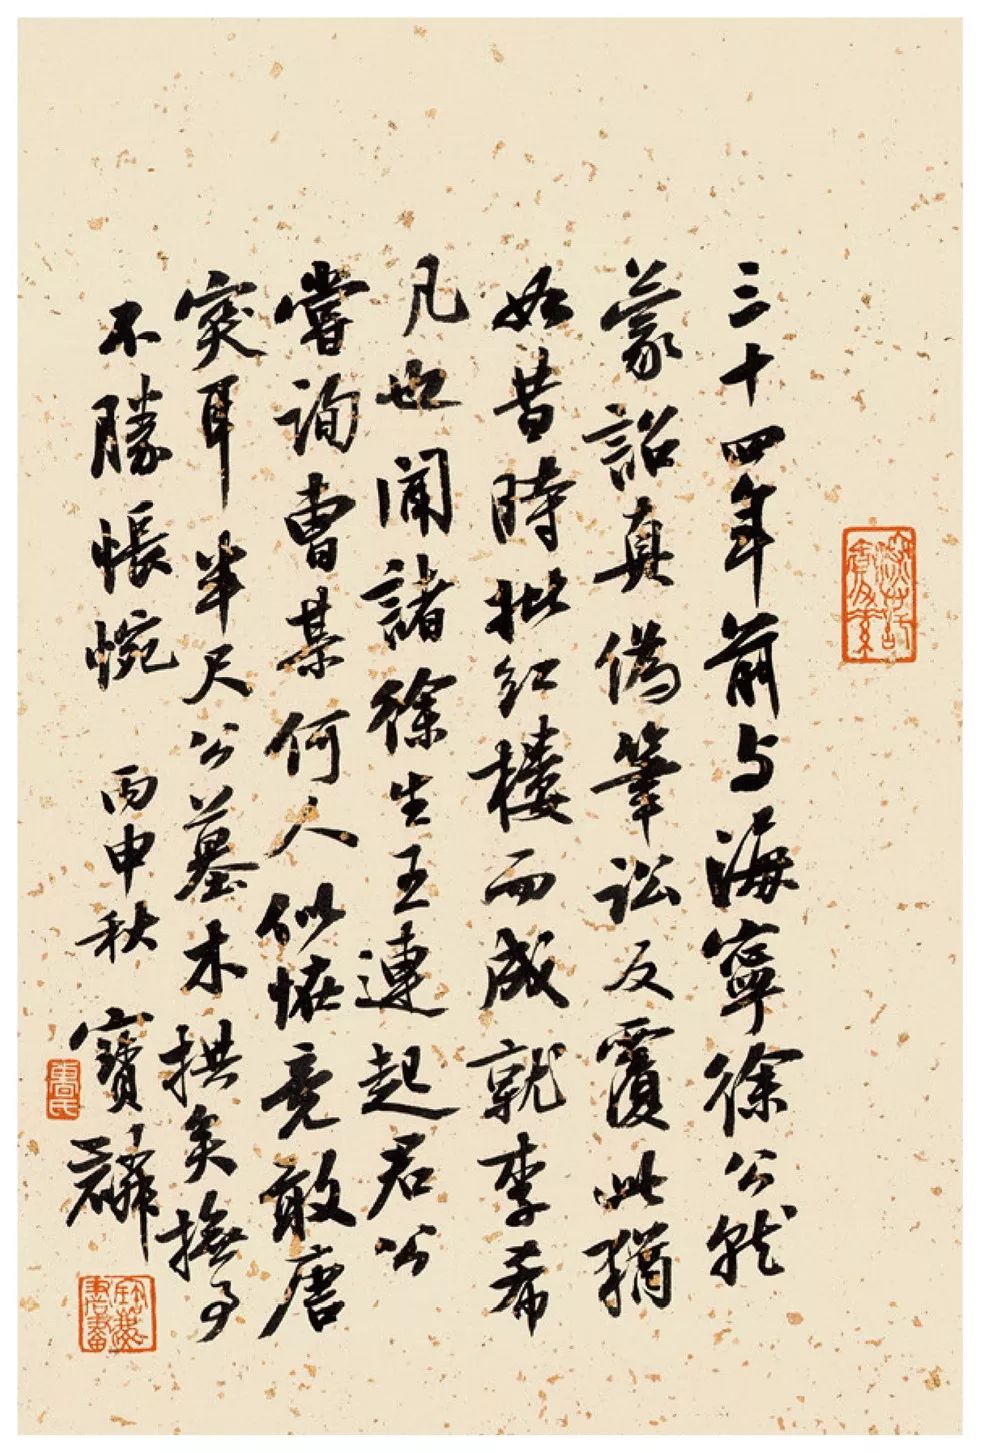 三十四年前与海寧徐公就
蒙詔真偽筆訟反覆此猶
如昔時批紅樓而成就李希
凡也聞諸徐生王連起君公
嘗詢曹某何人似怪竟敢唐
突耳半尺公墓木拱矣撫事
不勝悵惋 丙申秋 寶麟
曹氏